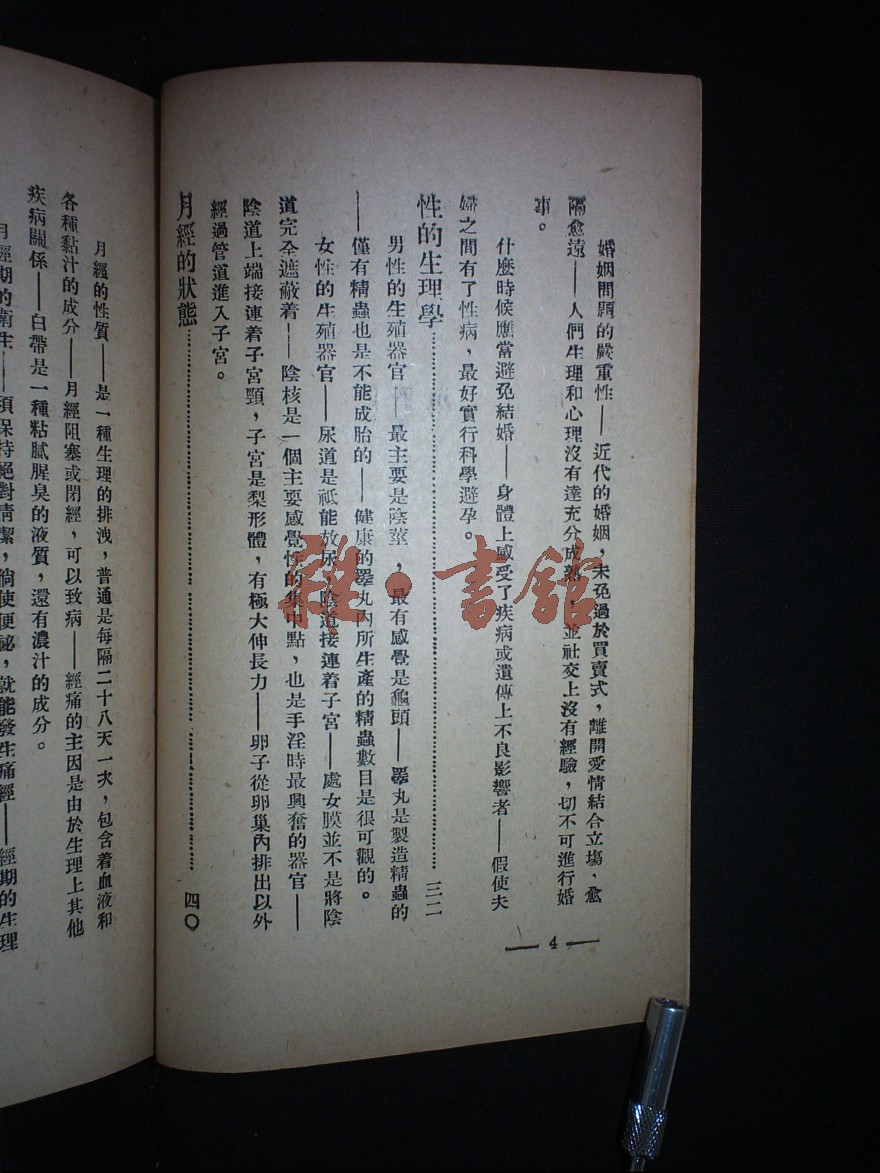 婚姻問題的嚴重性——近代的婚姻，未免過於買賣式，離開愛情結合立場，愈
隔愈遠——人們生理和心理沒有達充分成熟，並社交上沒有經驗，切不可進行婚
事。
什麼時候應當避免結婚——身體上感受了疾病或遺傳上不良影響者——假使夫
婦之間有了性病，最好實行科學避孕。
性的生理學……三二
男性的生殖器官——最主要是陰莖，最有感覺是龜頭——睪丸是製造精蟲的
——僅有精蟲也是不能成胎的——健康的睪丸內所生產的精蟲數目是很可觀的。
女性的生殖器官——尿道是祇能放尿，陰道接連着子宮——處女膜並不是將陰
道完全遮蔽着——陰核是一個主要感覺性的集中點，也是手淫時最興奮的器官——
陰道上端接連着子宮頸，子宮是梨形體，有極大伸長力——卵子從卵巢內排出以外
經過管道進入子宮。
月經的狀態……四〇
— 4 —
月經的性質——是一種生理的排洩，普通是每隔二十八天一次，包含着血液和
各種黏汁的成分——月經阻塞或閉經，可以致病——經痛的主因是由於生理上其他
疾病關係——白帶是一種粘膩腥臭的液質，還有濃汁的成分。
月經期的衛生——須保持絕對清潔，倘使便祕，就能發生痛經——經期的生理
雜·書館